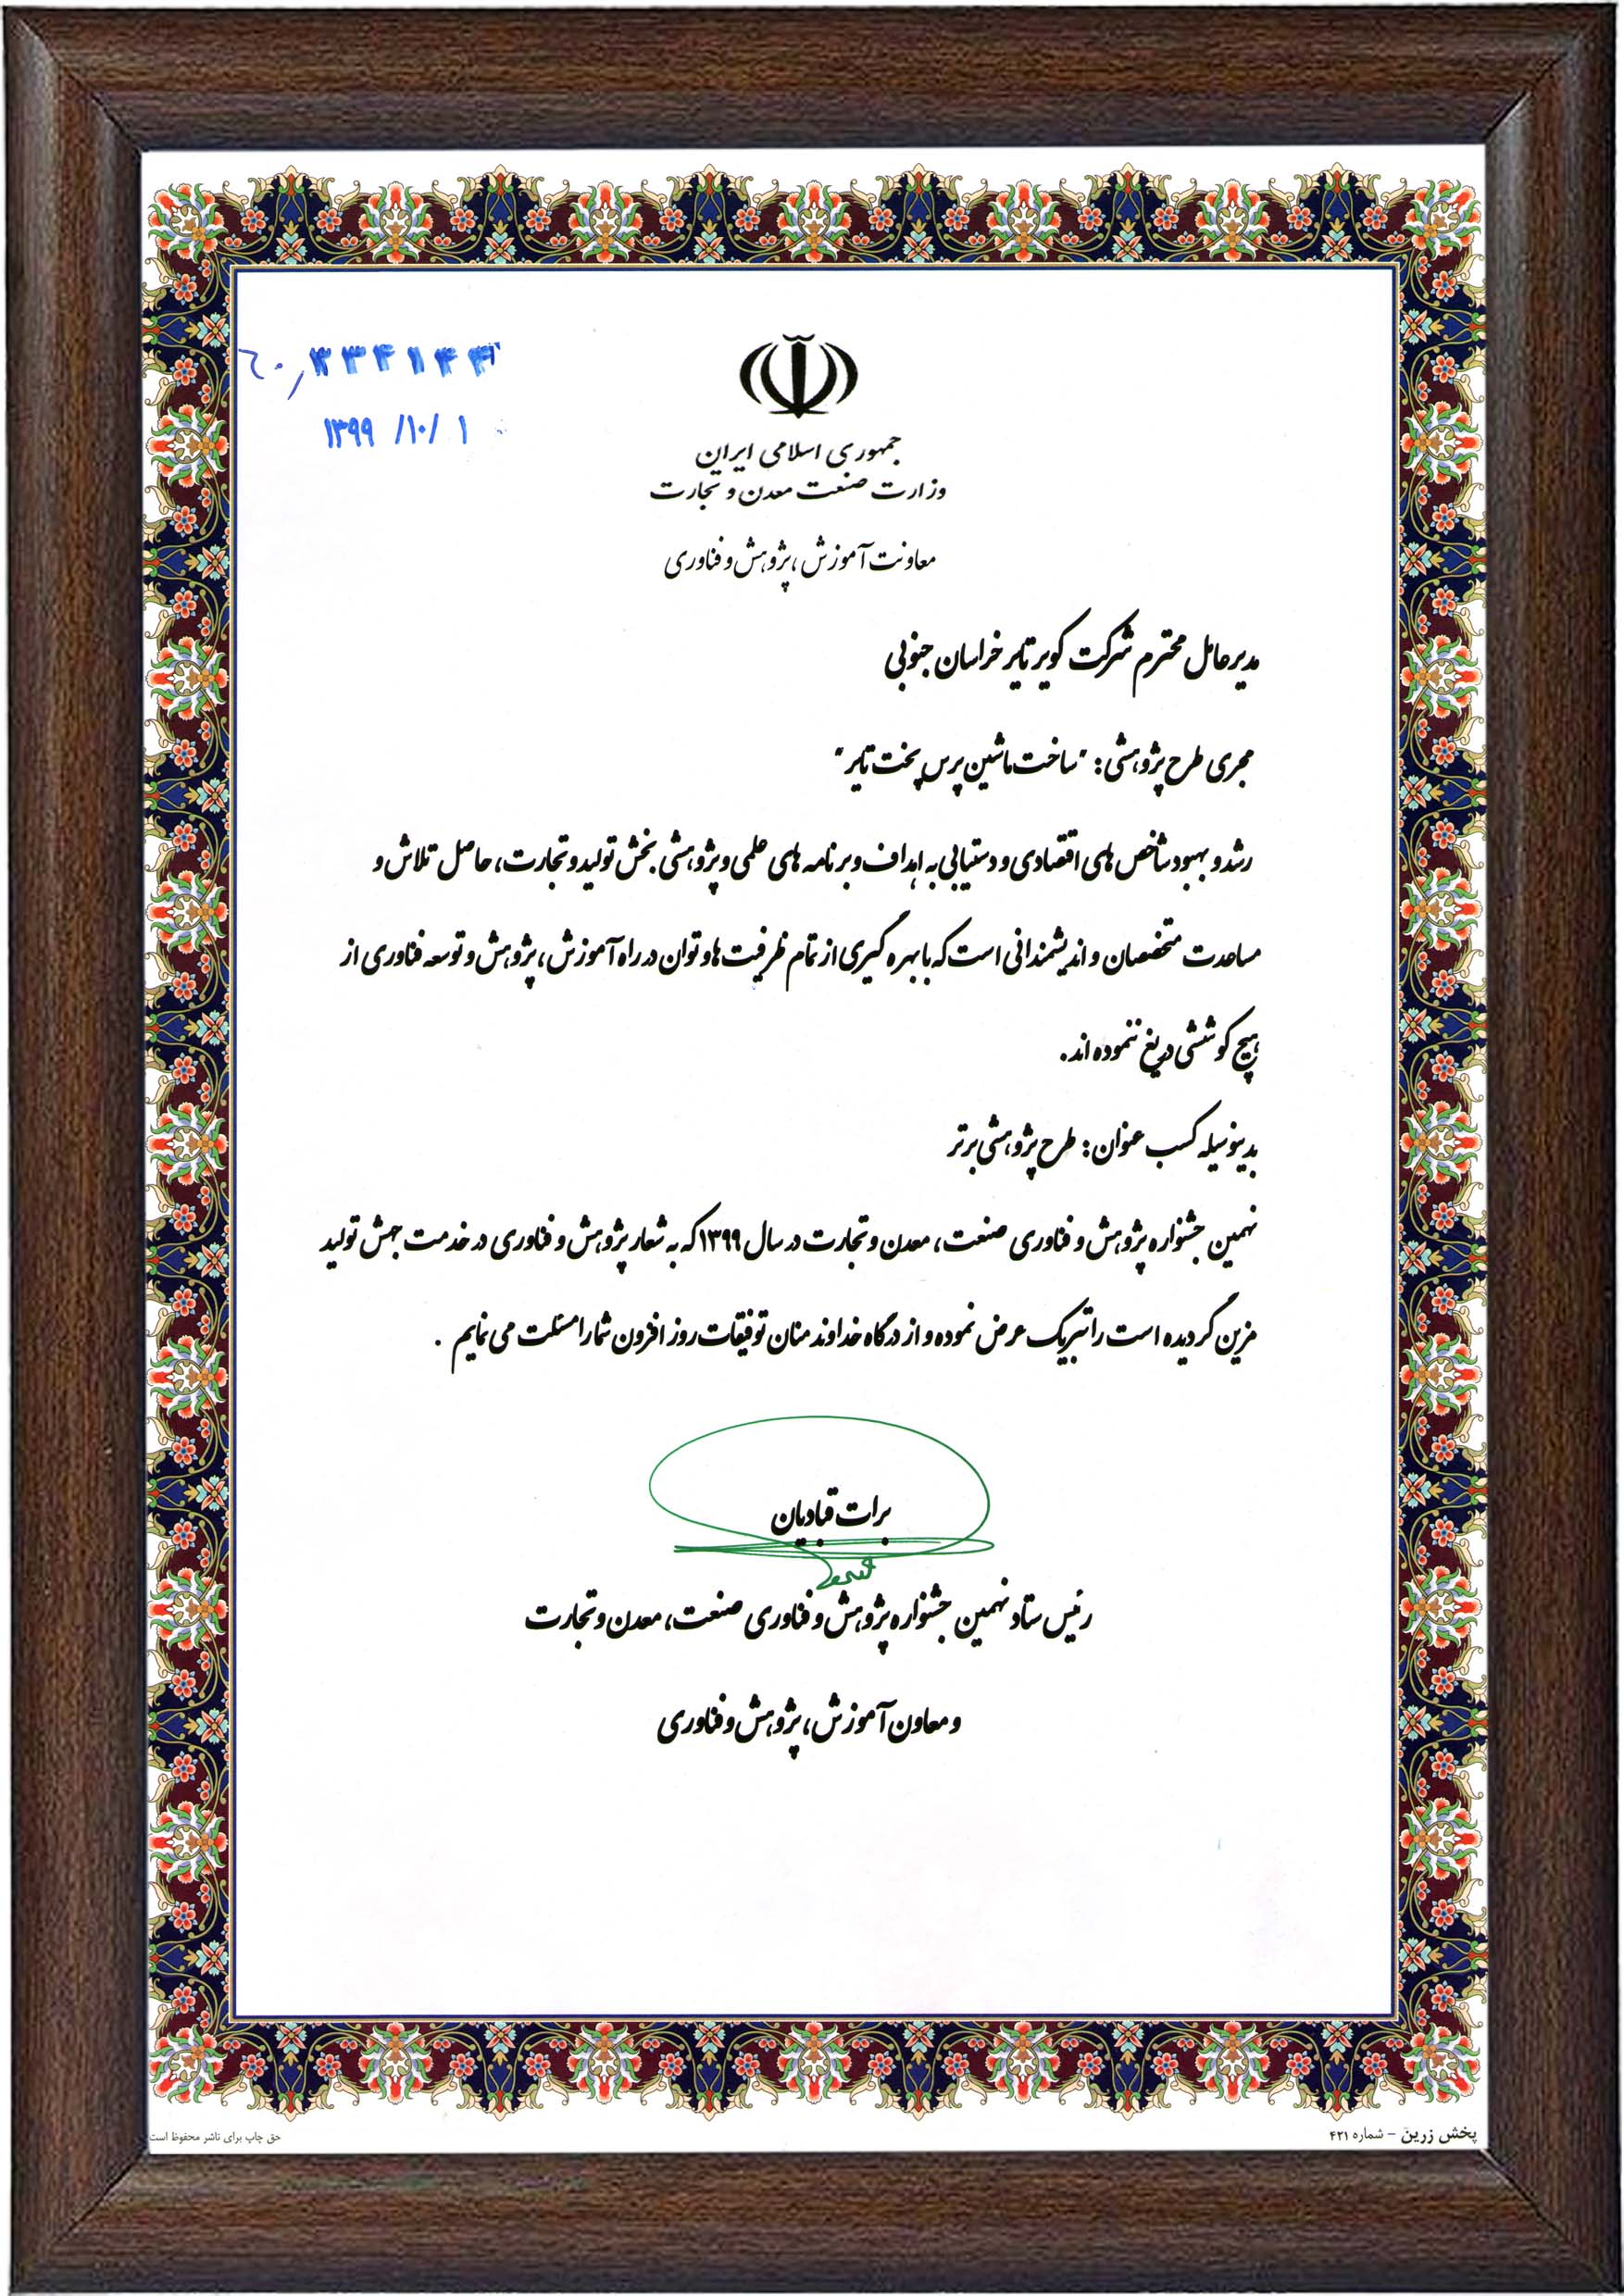 ۶۰/۲۳۴۱۴۴
۱۳۹۹/۱۰/۱
جمهوری اسلامی ایران
وزارت صنعت معدن و تجارت
معاونت آموزش، پژوهش و فناوری
مدیرعامل محترم شرکت کویر تایر خراسان جنوبی
مجری طرح پژوهشی: "ساخت ماشین پرس پخت تایر"
رشد و بهبود شاخص های اقتصادی و دستیابی به اهداف و برنامه های علمی و پژوهشی بخش تولید و تجارت، حاصل تلاش و
مساعدت متخصصان و اندیشمندانی است که با بهره گیری از تمام ظرفیت ها و توان در راه آموزش، پژوهش و توسعه فناوری از
هیچ کوششی دریغ ننموده اند.
بدینوسیله کسب عنوان: طرح پژوهشی برتر
نهمین جشنواره پژوهش و فناوری صنعت، معدن و تجارت در سال ۱۳۹۹ که به شعار پژوهش و فناوری در خدمت جهش تولید
مزین گردیده است را تبریک عرض نموده و از درگاه خداوند منان توفیقات روز افزون شما را مسئلت می نمایم .
برات قبادیان
رئیس ستاد نهمین جشنواره پژوهش و فناوری صنعت، معدن و تجارت
و معاون آموزش، پژوهش و فناوری
پخش زرین - شماره ۴۲۱
حق چاپ برای ناشر محفوظ است